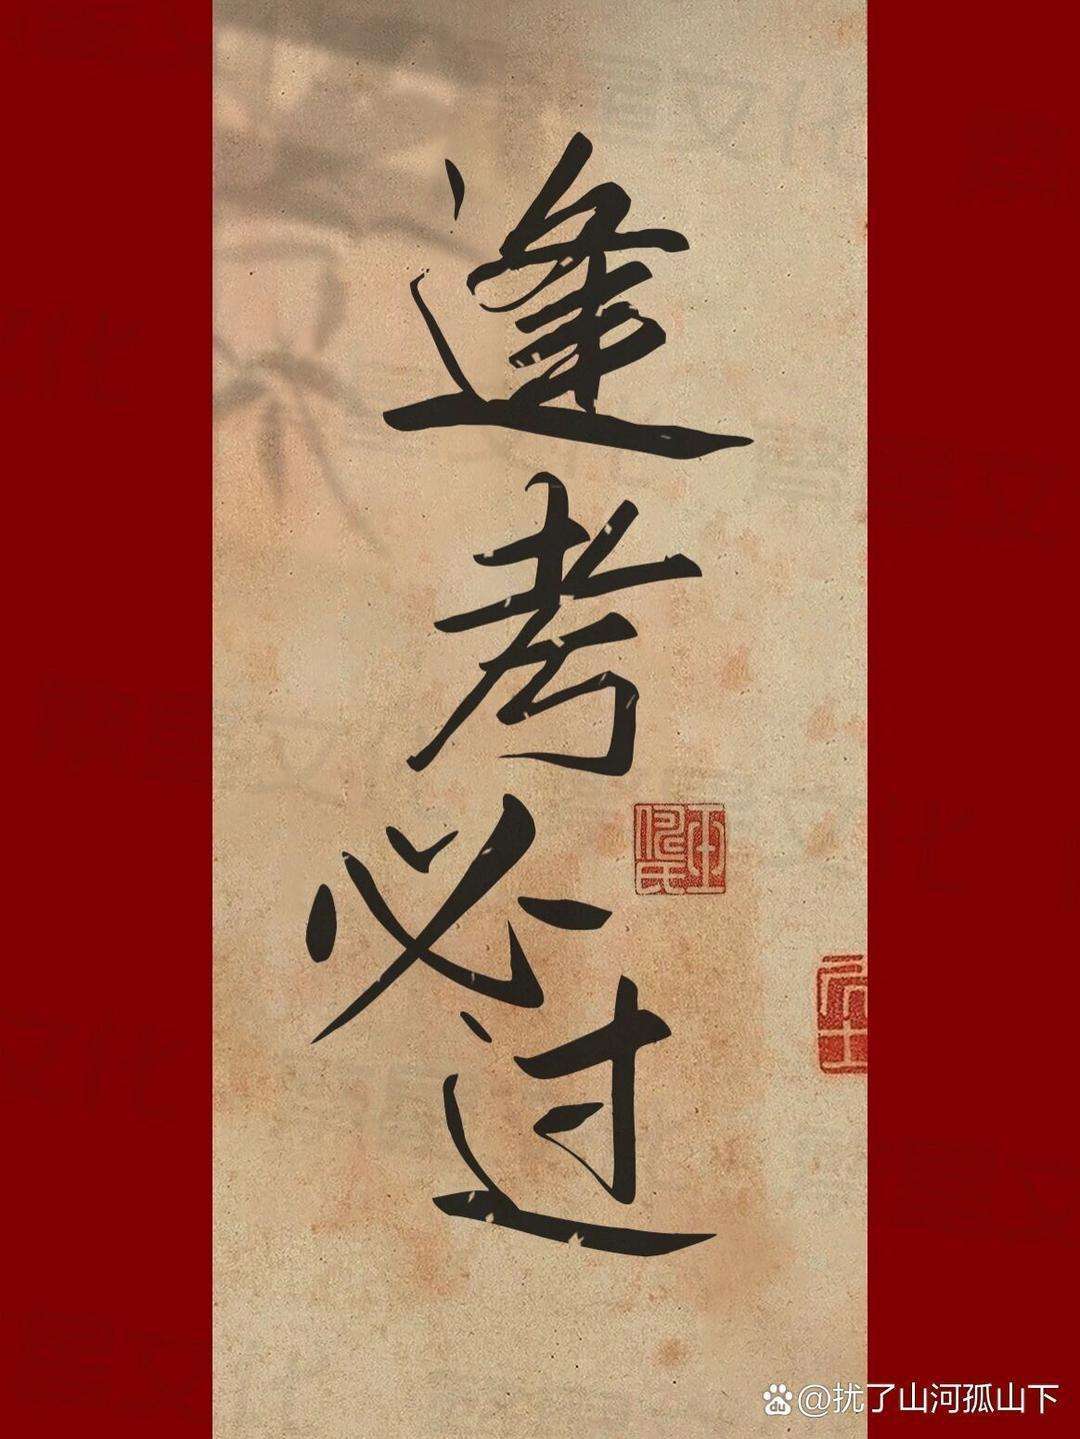 逢考必过
@扰了山河孤山下